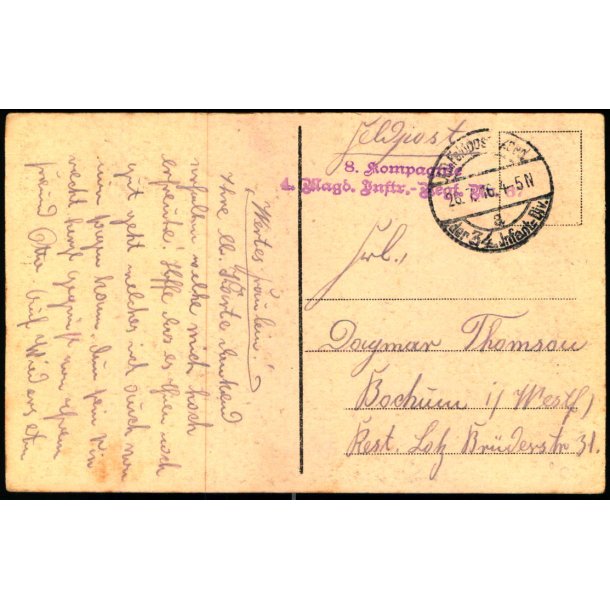 Wertes Fräulein!
Ihre lb. Karte dankend
erhalten welche mich hoch
erfreute! Hoffe das es Ihnen noch
gut geht welches ich auch von
mir sagen kann. Nun sein Sie
recht herzl. gegrüßt von Ihrem
Freund Otto Auf Wiedersehn
Feldpost
8. Kompagnie
4. Magd. Inftr.-Regt.
Feldpost
26.16.4-5N
a
der 34. Infant. Div.
Frl.,
Dagmar Thomson
Bochum i/Westf,
Rest. Lotz Brüderstr 31.